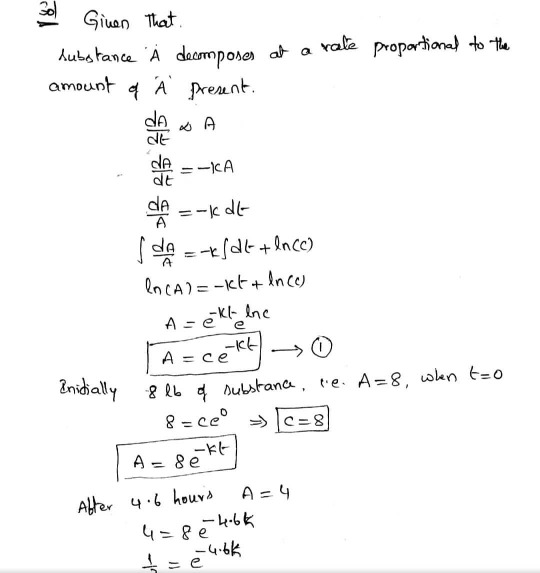 30) Given that.
Substance 'A' decomposes at a rate proportional to the
amount of 'A' present.
dA/dt ∝ A
dA/dt = -kA
dA/A = -k dt
∫ dA/A = -k∫dt + ln(c)
ln(A) = -kt + ln(c)
A = e^-kt e^lnc
A = ce^-kt → ①
Initially 8 lb of substance, i.e. A=8, when t=0
8 = ce^0 ⇒ c=8
A = 8e^-kt
After 4.6 hours A = 4
4 = 8 e^-4.6k
1/2 = e^-4.6k